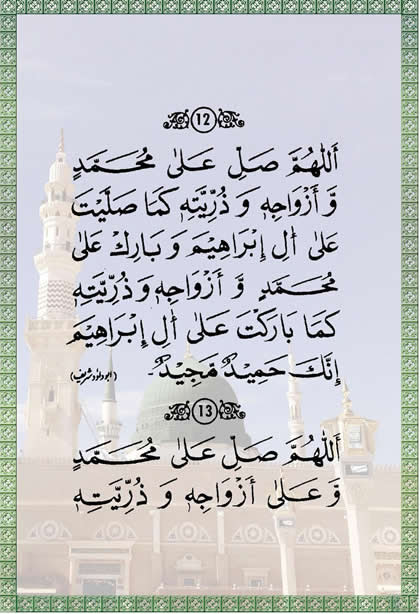 12
اَللّٰهُمَّ صَلِّ عَلٰى مُحَمَّدٍ
وَّ أَزْوَاجِهٖ وَ ذُرِّيَّتِهٖ كَمَا صَلَّيْتَ
عَلٰى اٰلِ إِبْرَاهِيْمَ وَ بَارِكْ عَلٰى
مُحَمَّدٍ وَّ أَزْوَاجِهٖ وَ ذُرِّيَّتِهٖ
كَمَا بَارَكْتَ عَلٰى اٰلِ إِبْرَاهِيْمَ
إِنَّكَ حَمِيْدٌ مَّجِيْدٌ۔ (ابوداؤد شریف)
13
اَللّٰهُمَّ صَلِّ عَلٰى مُحَمَّدٍ
وَّ عَلٰى أَزْوَاجِهٖ وَ ذُرِّيَّتِهٖ